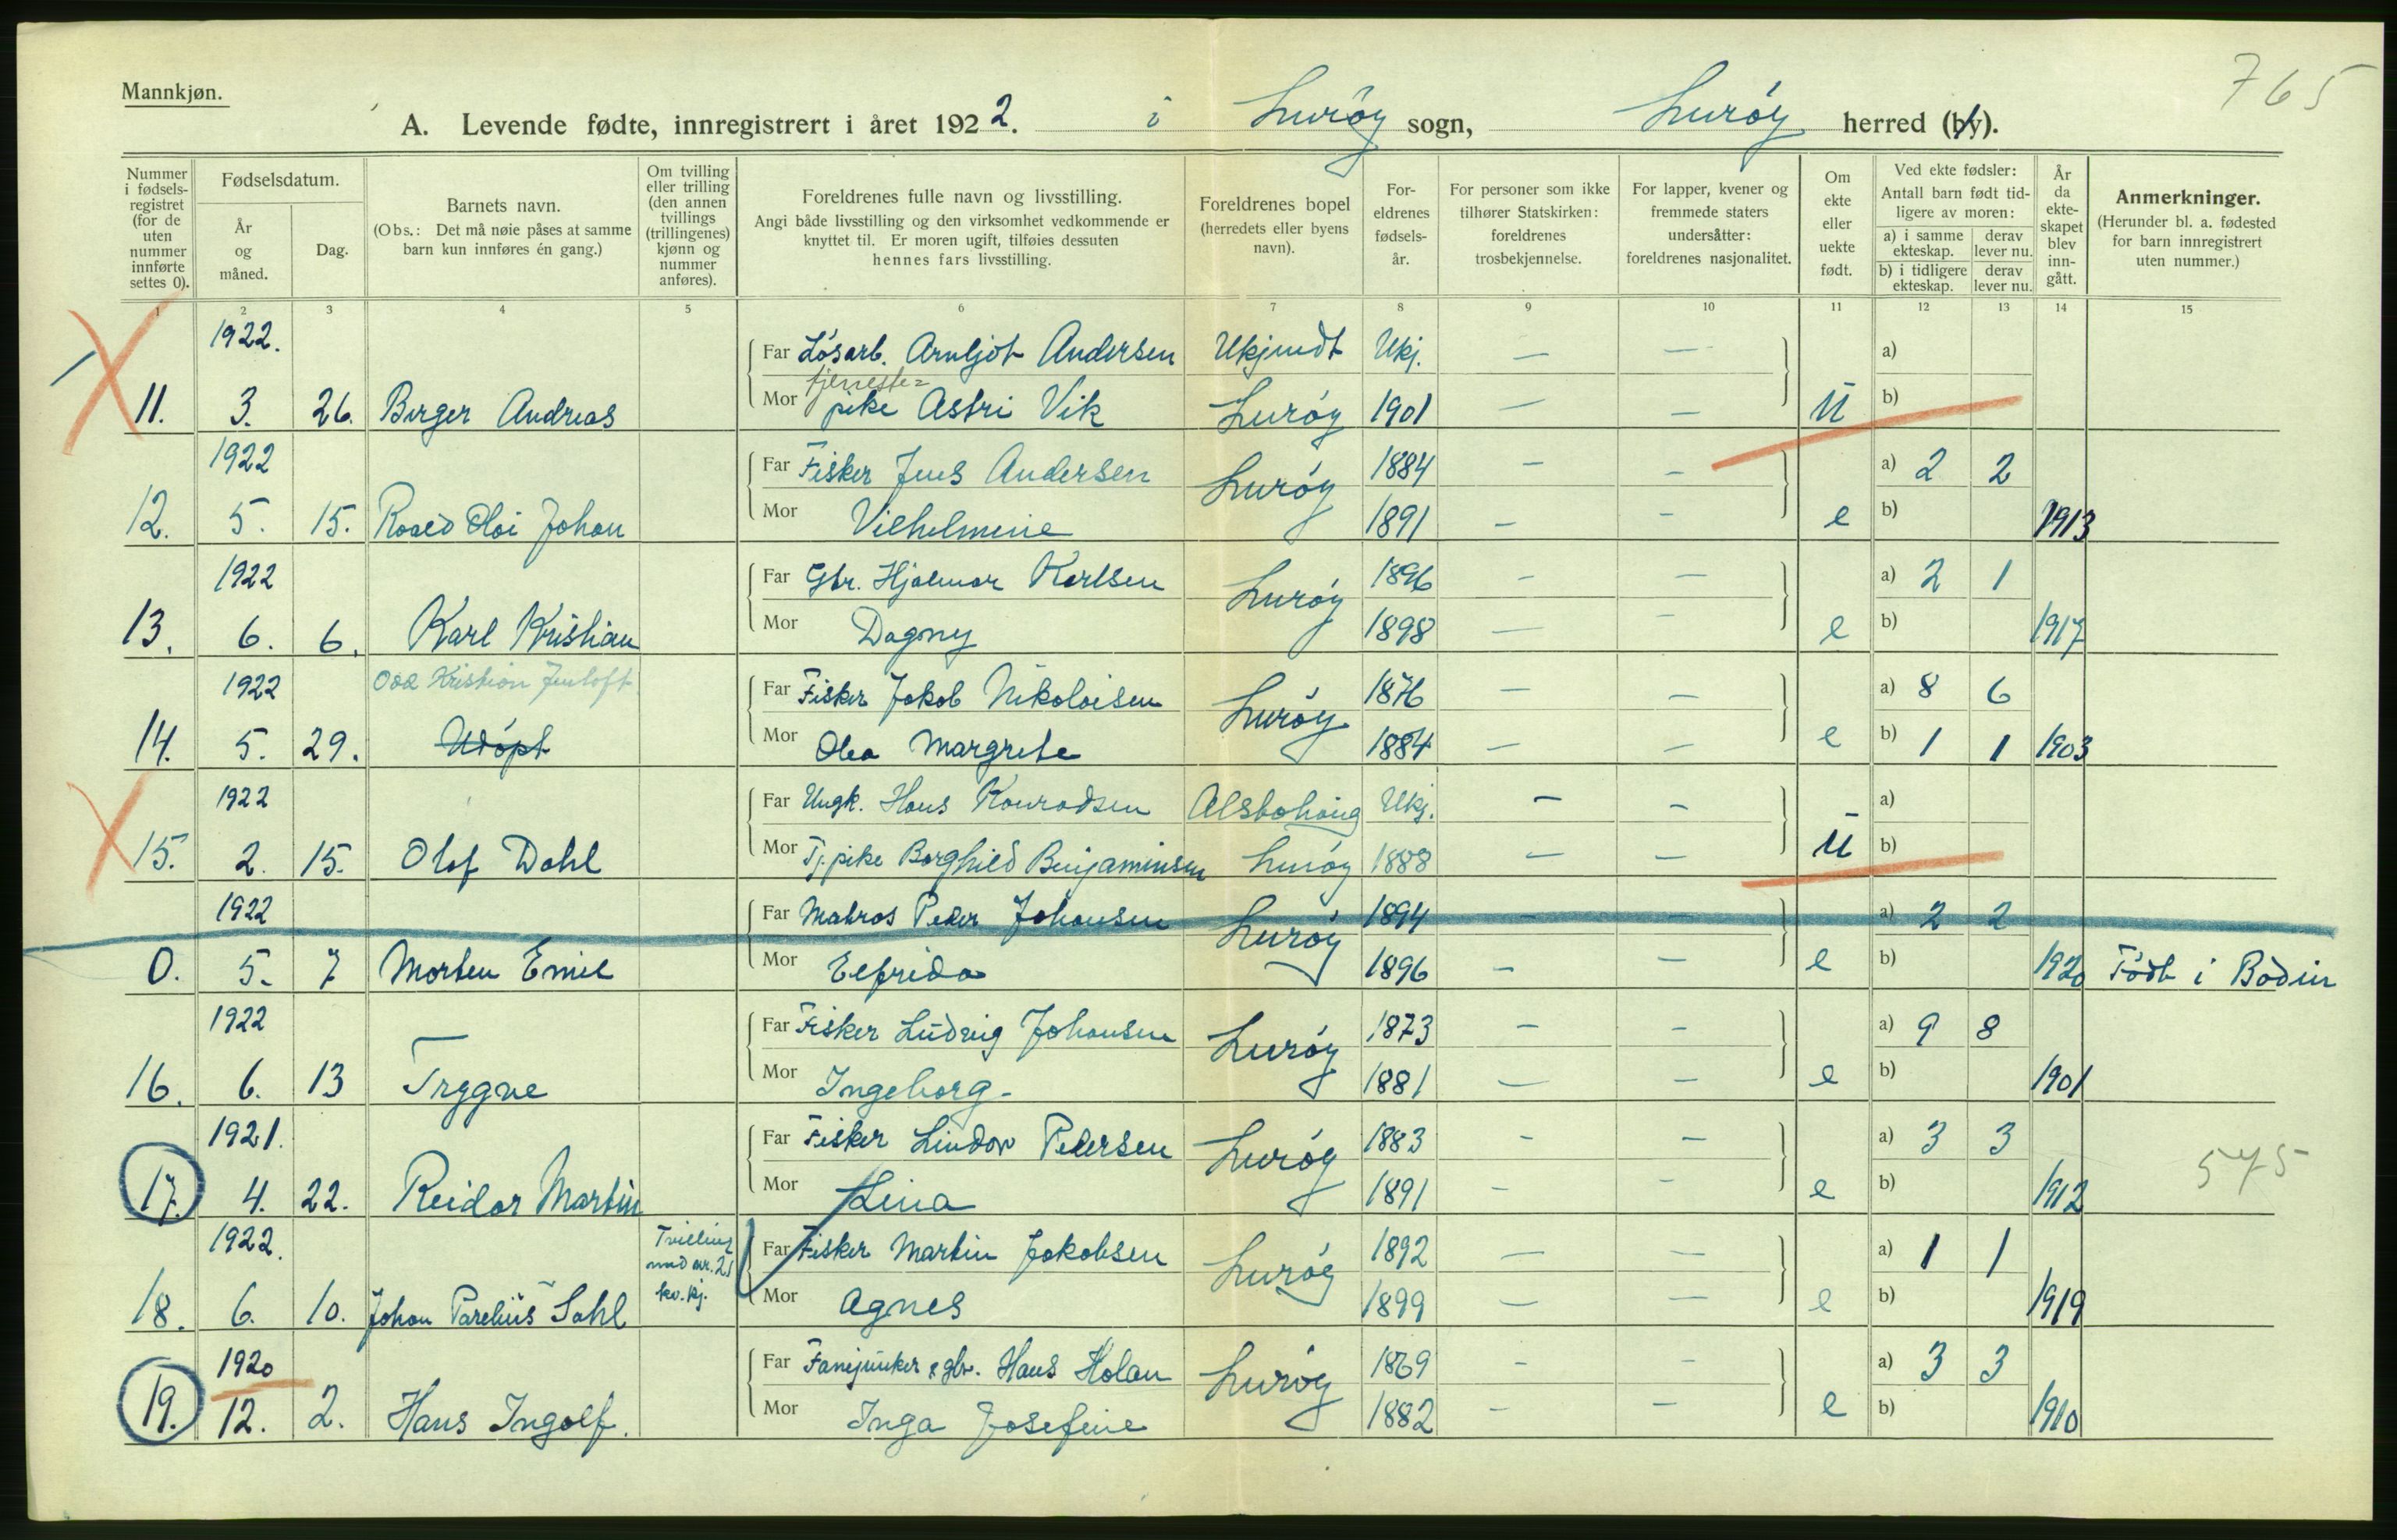 765
Mannkjøn.
A. Levende fødte, innregistrert i året 1922. i Lurøy sogn, Lurøy herred (by).
Nummer i fødsels-registret (for de uten nummer innførte settes 0).
Fødselsdatum.
År og måned.
Dag.
Barnets navn.
(Obs.: Det må nøie påses at samme barn kun innføres én gang.)
Om tvilling eller trilling (den annen tvillings (trillingenes) kjønn og nummer anføres).
Foreldrenes fulle navn og livsstilling.
Angi både livsstilling og den virksomhet vedkommende er knyttet til. Er moren ugift, tilføies dessuten hennes fars livsstilling.
Foreldrenes bopel (herredets eller byens navn).
For-eldrenes fødsels-år.
For personer som ikke tilhører Statskirken: foreldrenes trosbekjennelse.
For lapper, kvener og fremmede staters undersåtter: foreldrenes nasjonalitet.
Om ekte eller uekte født.
Ved ekte fødsler: Antall barn født tid-ligere av moren:
a) i samme ekteskap. derav lever nu.
b) i tidligere ekteskap. derav lever nu.
År da ekte-skapet blev inn-gått.
Anmerkninger.
(Herunder bl. a. fødested for barn innregistrert uten nummer.)
1 2 3 4 5 6 7 8 9 10 11 12 13 14 15
1922. Far Løsarb. Arnljot Andersen Ukjendt Ukj. — — a)
tjeneste=
11. 3. 26. Birger Andreas Mor pike Astri Vik Lurøy 1901 — — U b)
1922 Far Fisker Jens Andersen Lurøy 1884 — — a) 2 2
12. 5. 15. Roald Oloi Johan Mor Vilhelmine 1891 — — e b) 1913
1922 Far Gbr. Hjalmar Karlsen Lurøy 1896 — — a) 2 1
13. 6. 6. Karl Kristian Mor Dagny 1898 — — e b) 1917
1922 Odd Kristian Jentoft Far Fisker Jakob Nikolaisen Lurøy 1876 — — a) 8 6
14. 5. 29. Udøpt Mor Olea Margrete 1884 — — e b) 1 1 1903
1922 Far Ungk. Hans Konradsen Alstahaug Ukj. — — a)
15. 2. 15. Olaf Dahl Mor Tj.pike Borghild Benjaminsen Lurøy 1888 — — U b)
1922 Far Matros Peder Johansen Lurøy 1894 — — a) 2 2
0. 5. 7 Morten Emil Mor Elfrida 1896 — — e b) 1920 Født i Bodin
1922 Far Fisker Ludvig Johansen Lurøy 1873 — — a) 9 8
16. 6. 13 Trygve Mor Ingeborg 1881 — — e b) 1901
1921. Far Fisker Lindor Pedersen Lurøy 1883 — — a) 3 3
17. 4. 22. Reidar Martin Mor Lina 1891 — — e b) 1912 575
1922. Tvilling med nr. 21 kv. kj. Far Fisker Martin Jakobsen Lurøy 1892 — — a) 1 1
18. 6. 10. Johan Parelius Dahl Mor Agnes 1899 — — e b) 1919
1920 Far Fanejunker & gbr. Hans Holan Lurøy 1869 — — a) 3 3
19. 12. 2. Hans Ingolf. Mor Inga Josefine 1882 — — e b) 1910